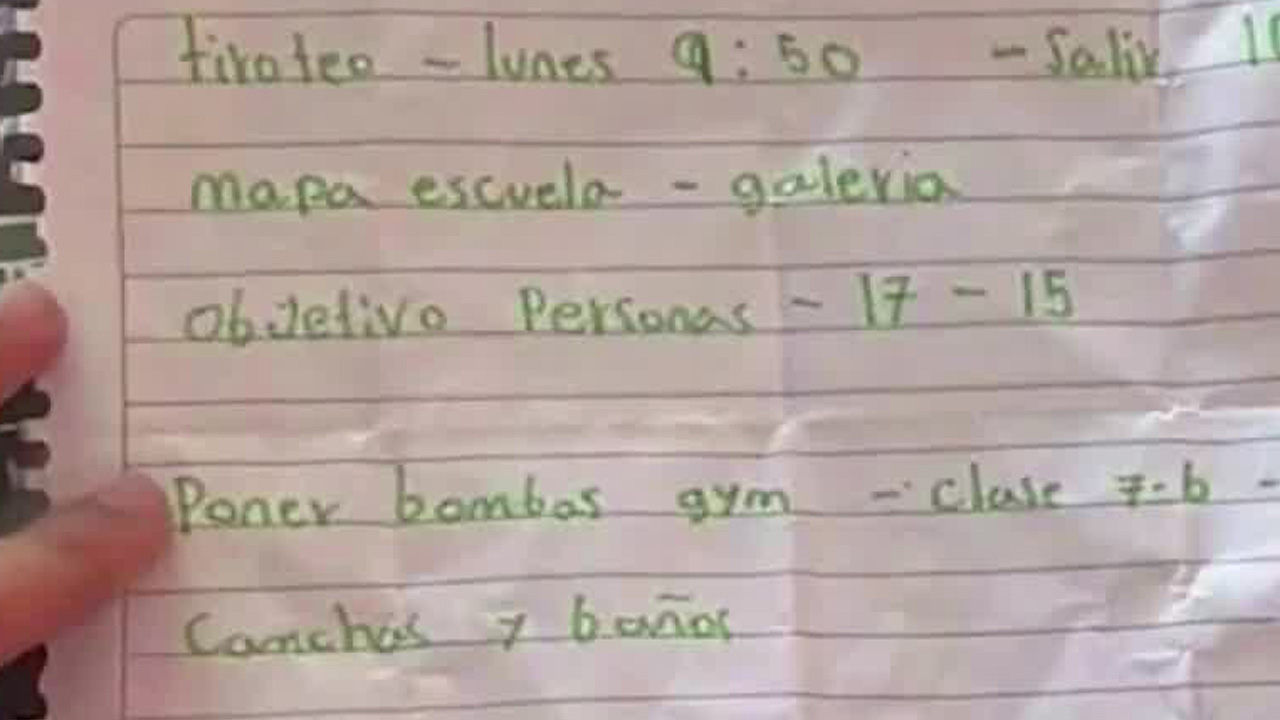 tiroteo - lunes 9:50 - Salir 10
mapa escuela - galeria
Objetivo Personas - 17 - 15
Poner bombas gym - clase 7-b -
Canchas y baños